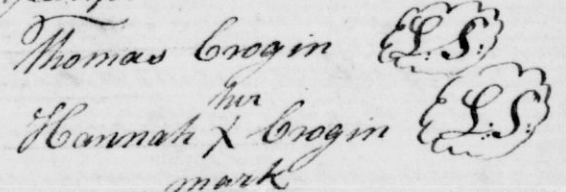 Thomas Crogin L.S.
her
Hannah X Crogin L.S.
mark